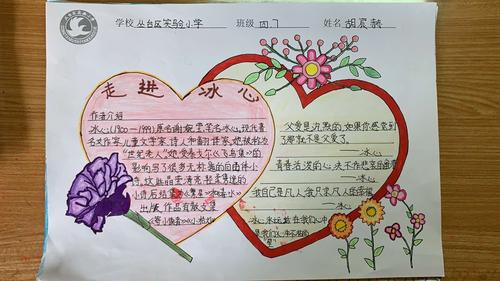 学校 丛台区实验小学 班级 四.7 姓名 胡宸赫
走进冰心
作者介绍
冰心(1900-1999)原名谢婉莹,笔名冰心,现代著
名文作家,儿童文学家,诗人和翻译家,她被称为
"世纪老人"她受泰戈尔《飞鸟集》的
影响写了很多无标题的自由体小
诗,这些晶莹清亮、轻柔隽逸的
小诗后结集《繁星》和《春水》
出版,作品有散文集
《寄小读者》
父爱是沉默的,如果你感觉到
了那就不是父爱了。
—冰心
青春活泼的心,决不作悲哀的
—冰心
我自己是凡人,我只求凡人的幸福
—冰心
冰心